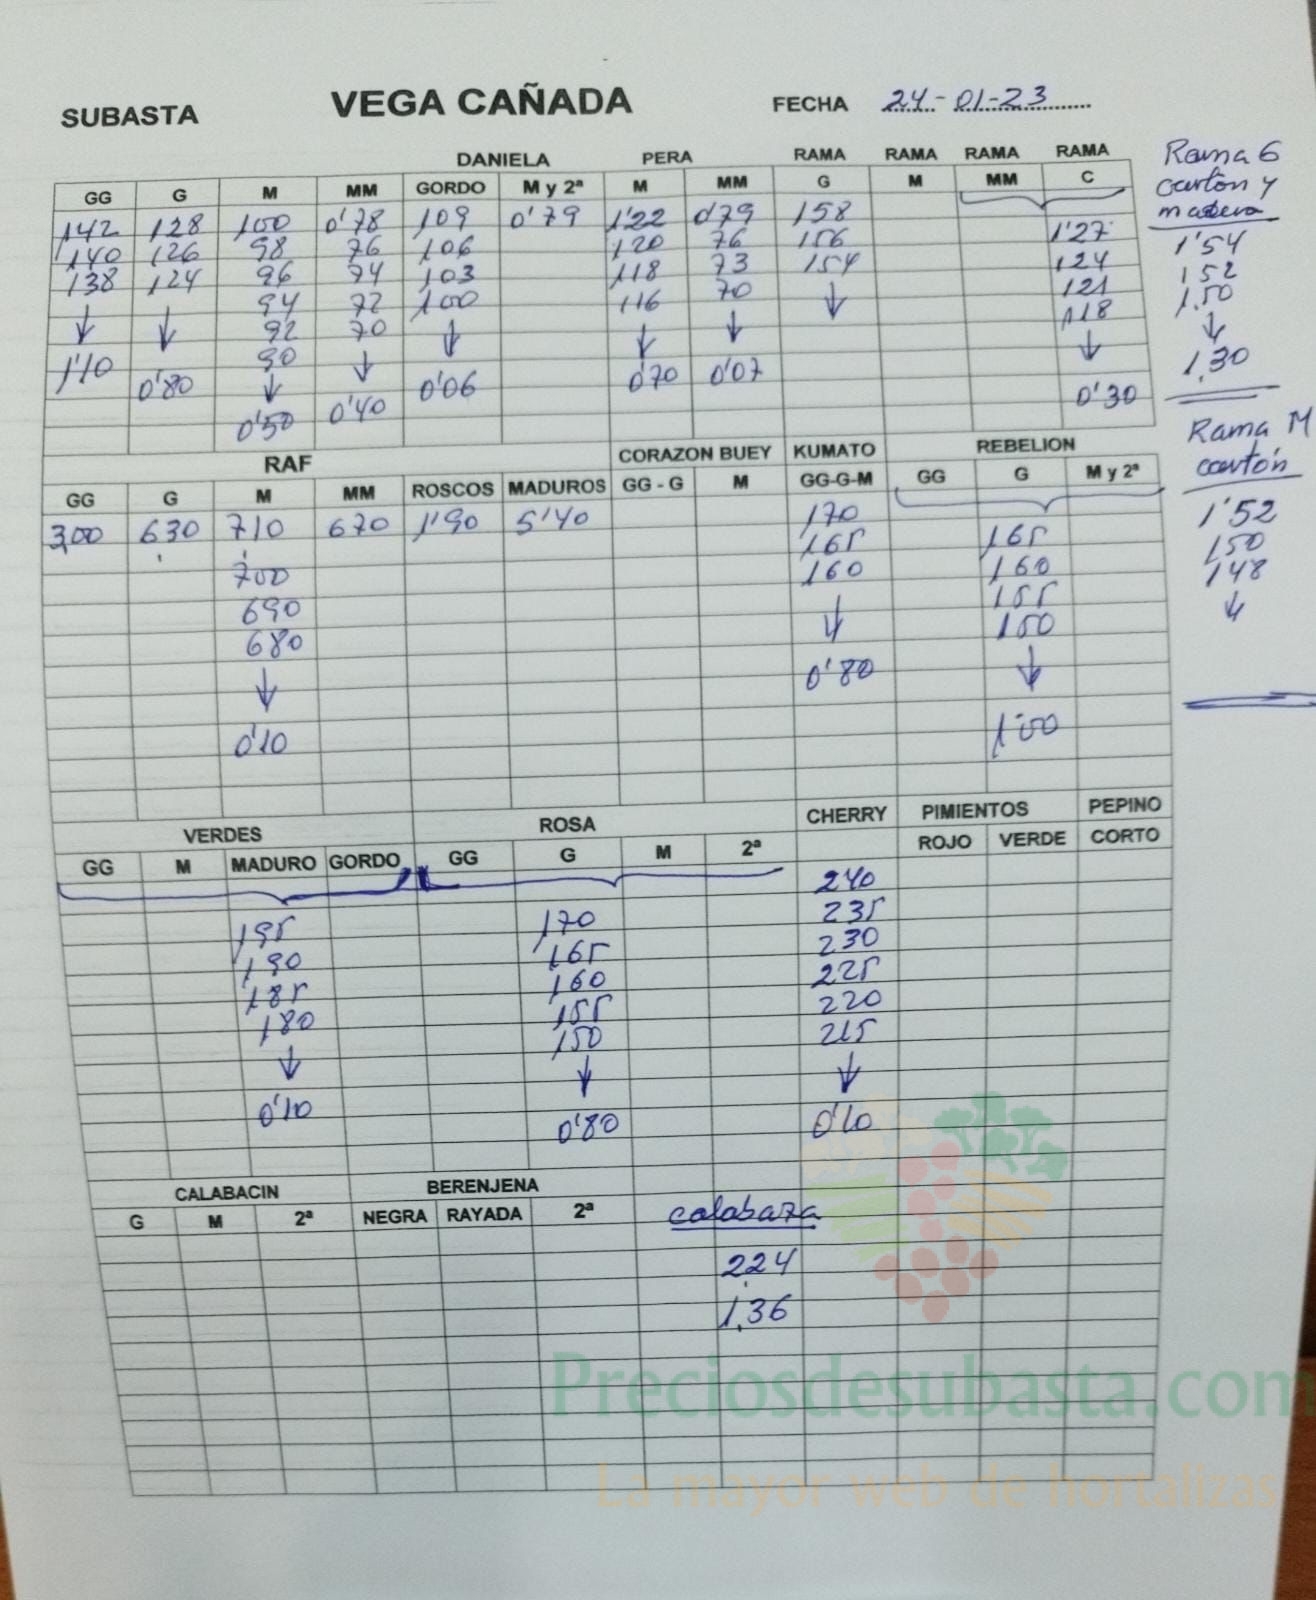 SUBASTA VEGA CAÑADA FECHA 24-01-23
DANIELA PERA RAMA RAMA RAMA RAMA
GG G M MM GORDO M y 2ª M MM G M MM C
142 128 100 0'78 109 0'79 1'22 0'79 158
140 126 98 76 106 120 76 156 1'27
138 124 96 74 103 118 73 154 124
94 72 100 116 70 ↓ 121
↓ ↓ 92 70 ↓ ↓ ↓ 118
1'10 90 ↓ ↓
0'80 ↓ 0'40 0'06 0'70 0'07 0'30
0'50
Rama G
cartón y
madera
1'54
152
1.50
↓
1,30
Rama M
cartón
1'52
150
148
↓
RAF CORAZON BUEY KUMATO REBELION
GG G M MM ROSCOS MADUROS GG - G M GG-G-M GG G M y 2ª
3,00 630 710 670 1'90 5'40 170
165 165
700 160 160
690 155
680 ↓ 150
↓ 0'80 ↓
0'10 1'00
VERDES ROSA CHERRY PIMIENTOS PEPINO
GG M MADURO GORDO GG G M 2ª ROJO VERDE CORTO
240
195 170 235
190 165 230
185 160 225
180 155 220
150 215
↓ ↓ ↓
0'10 0'80 0'10
CALABACIN BERENJENA
G M 2ª NEGRA RAYADA 2ª calabaza
2.24
1,36
Preciosdesubasta.com
La mayor web de hortalizas